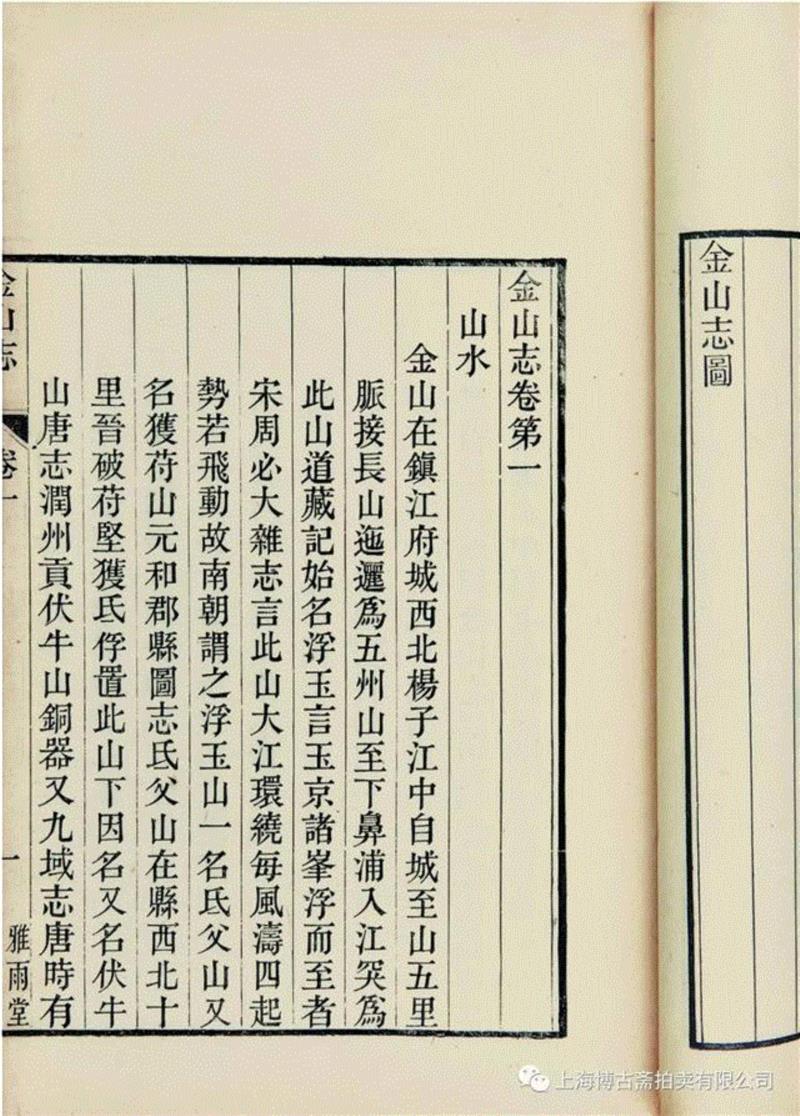 金山志圖
金山志卷第一
山水
金山在鎮江府城西北楊子江中自城至山五里
脈接長山迤邐爲五州山至下鼻浦入江突爲
此山道藏記始名浮玉言玉京諸峯浮而至者
宋周必大雜志言此山大江環繞每風濤四起
勢若飛動故南朝謂之浮玉山一名氐父山又
名獲苻山元和郡縣圖志氐父山在縣西北十
里晉破苻堅獲氐俘置此山下因名又名伏牛
山唐志潤州貢伏牛山銅器又九域志唐時有
金山志
卷一
一
雅雨堂
上海博古斋拍卖有限公司